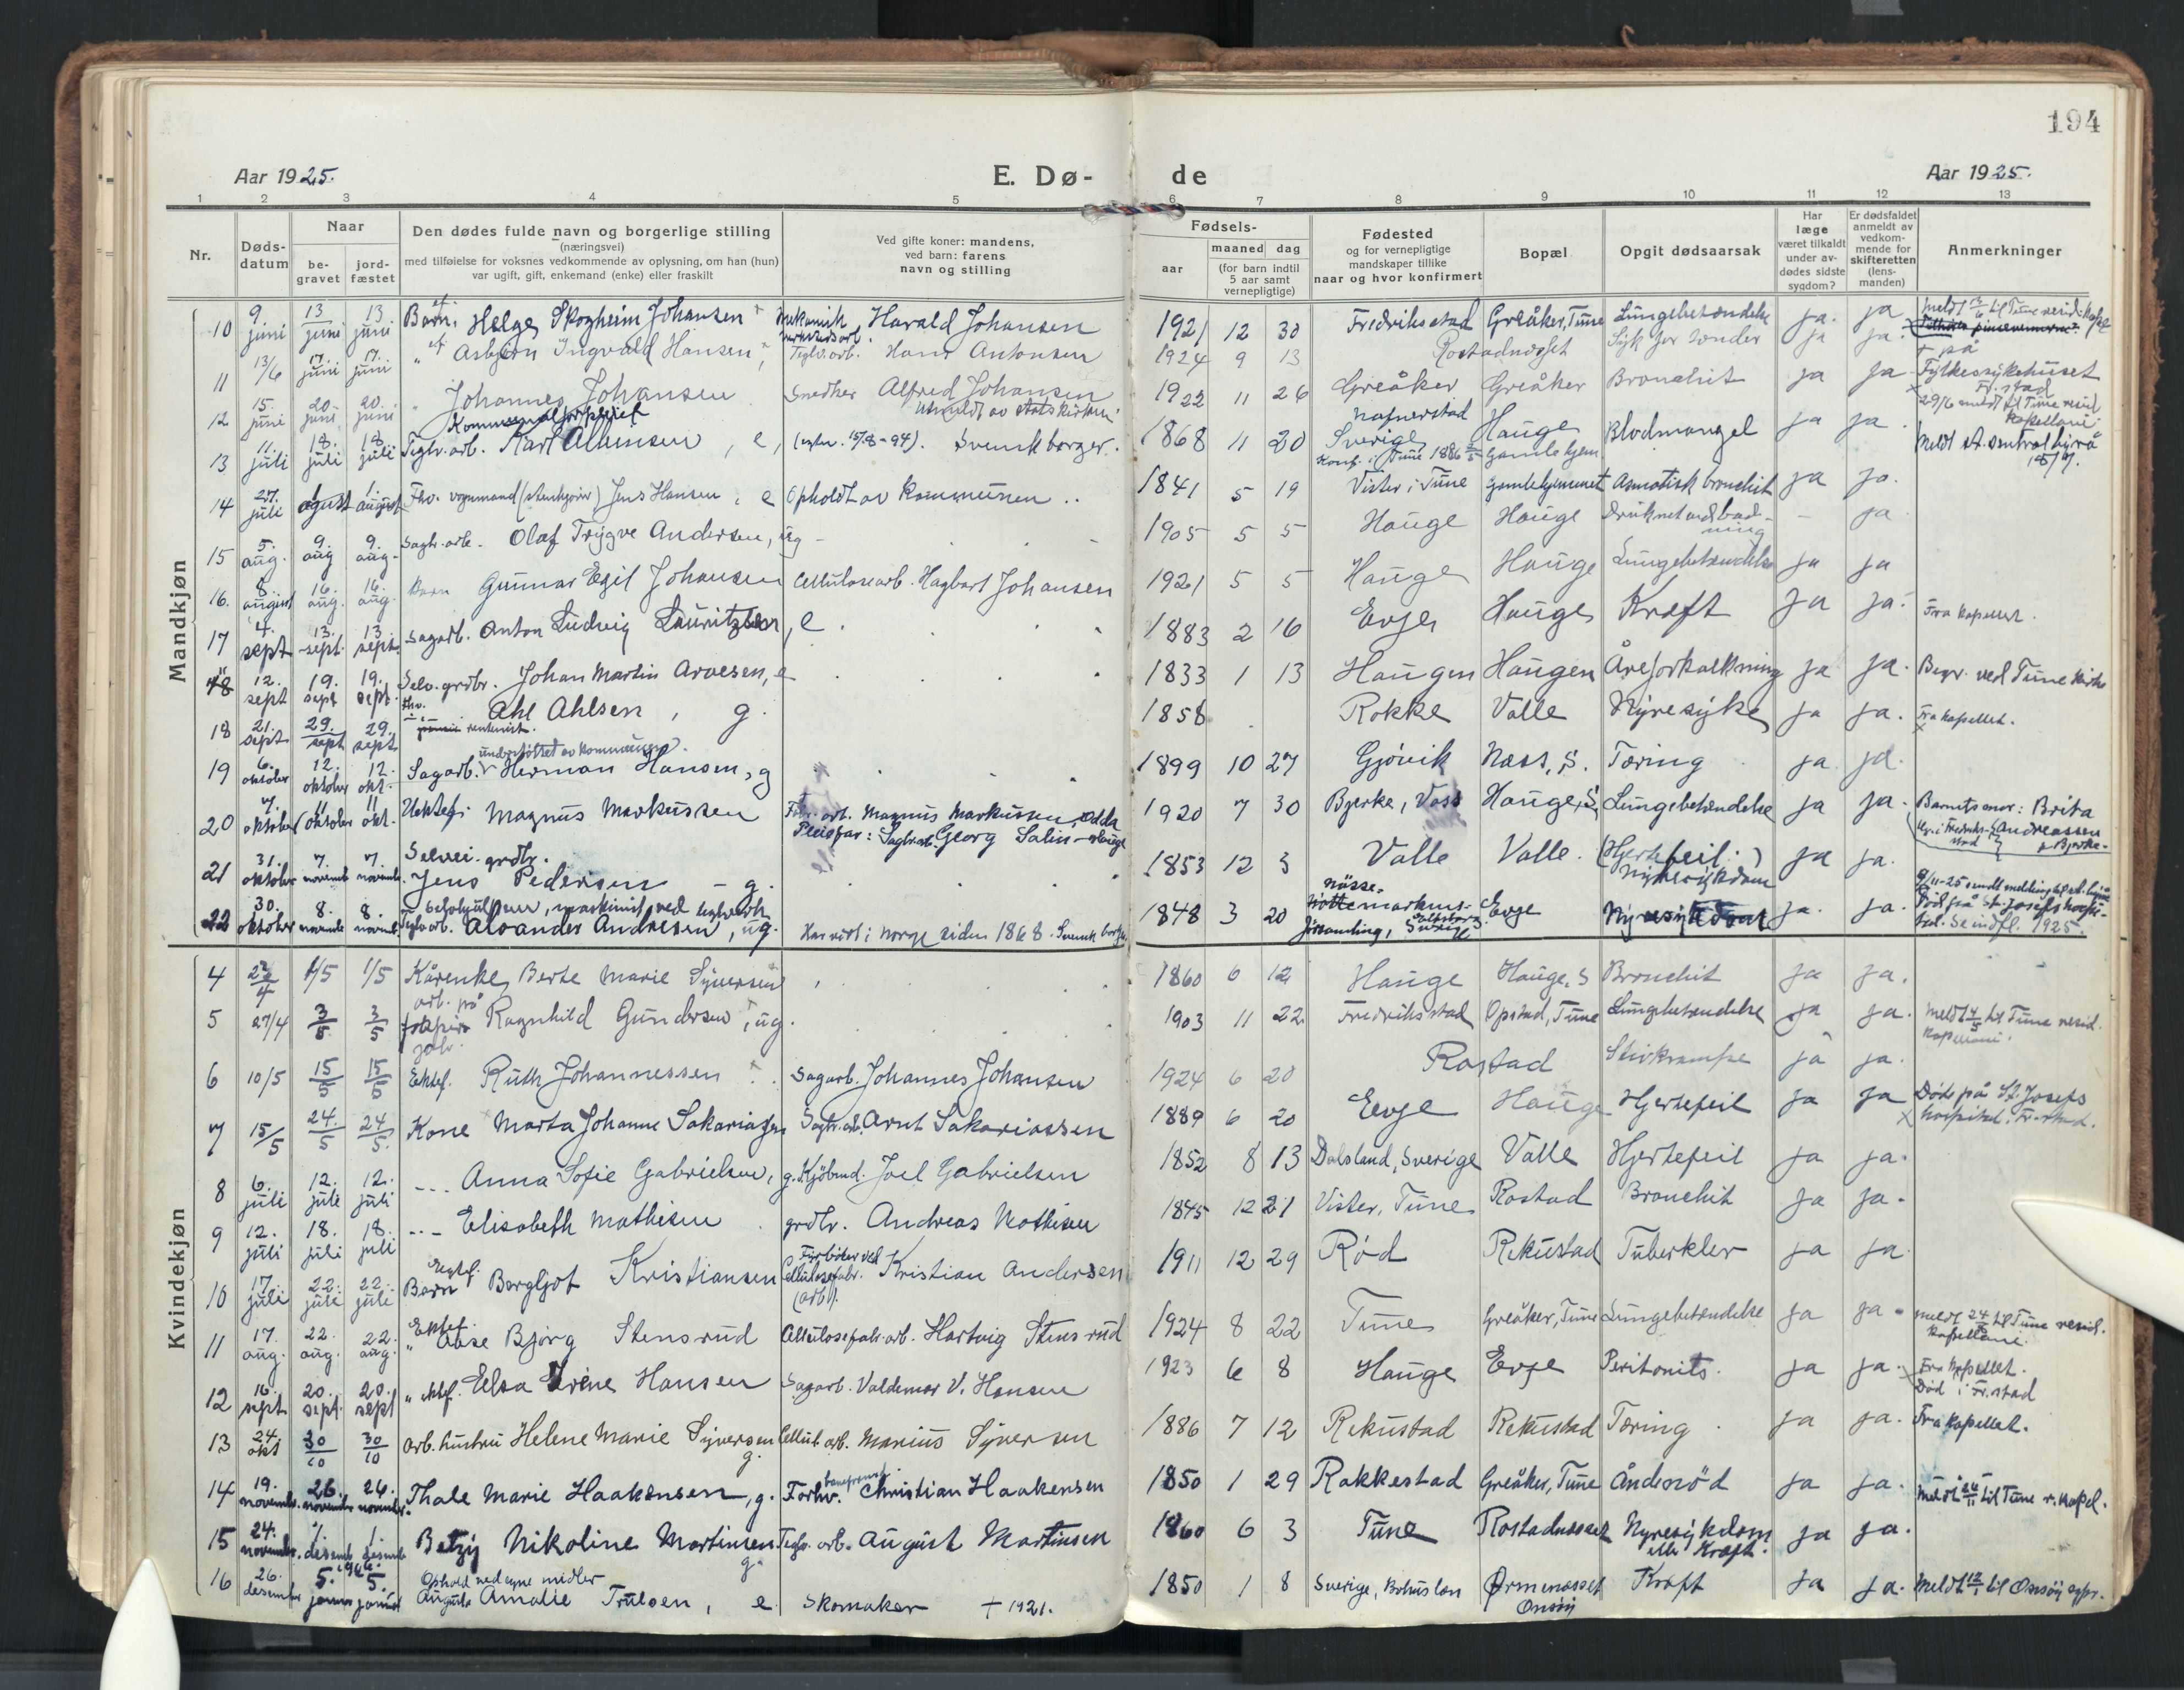 194
Aar 1925.
E. Dø-
de
Aar 1925.
1 2 3 4 5 6 7 8 9 10 11 12 13
Nr.
Døds-
datum
Naar
be-
gravet
jord-
fæstet
Den dødes fulde navn og borgerlige stilling
(næringsvei)
med tilføielse for voksnes vedkommende av oplysning, om han (hun)
var ugift, gift, enkemand (enke) eller fraskilt
Ved gifte koner: mandens,
ved barn: farens
navn og stilling
Fødsels-
aar
maaned dag
(for barn indtil
5 aar samt
vernepligtige)
Fødested
og for vernepligtige
mandskaper tillike
naar og hvor konfirmert
Bopæl
Opgit dødsaarsak
Har
læge
været tilkaldt
under av-
dødes sidste
sygdom?
Er dødsfaldet
anmeldt av
vedkom-
mende for
skifteretten
(lens-
manden)
Anmerkninger
Mandkjøn
10 9. juni 13 juni 13 juni Barn. Helge Skogheim Johansen mekanisk verkstedsarb. Harald Johansen 1921 12 30 Fredriksstad Greåker, Tune Lungebetændelse ja. ja
11 13/6 17. juni 17. juni Asbjørn Ingvald Hansen Teglv. arb. Hans Antonsen 1924 9 13 Rostadnesset Syk for tænder ja ja.
12 15. juni 20. juni 20. juni Johannes Johansen Snedker Alfred Johansen Utmeldt av statskirken. 1922 11 26 Greåker Greåker Bronchit ja ja på Fylkessykehuset Fr. stad
29/6 meldt til Tune resid. kapellani
13 11. juli 18. juli 18. juli Teglv. arb. Karl Albinsen, e, Svensk borger. 1868 11 20 Sverige Konf. i Tune 1886 Hauge Gamlehjem Blodmangel ja ja.
14 27. juli 1 august 1. august Fhv. vognmand Jens Hansen, e Opholdt av kommunen 1841 5 19 Vister i Tune Gamlehjemmet Asmatisk bronchit ja ja.
15 5. aug. 9. aug 9. aug. Sagbr. arb. Olaf Trygve Andersen, ug 1905 5 5 Hauge Hauge Druknet under bad-
ning - ja
16. 8. august 16. aug. 16. aug. Barn Gunnar Egil Johansen Cellulosearb. Hagbart Johansen 1921 5 5 Hauge Hauge Lungebetændelse ja ja
17 4. sept 13. sept. 13 sept. Sagarb. Anton Ludvig Lauritzsen, e. 1883 2 16 Evje Hauge Kræft ja ja. Fra kapellet.
18 12. sept 19. sept 19. sept. Selv. grdbr. Johan Martin Arvesen, e 1833 1 13 Haugen Haugen Åreforkalkning ja ja. Begr. ved Tune kirke
18 21. sept 29. sept 29. sept fhv. Ahl Ahlsen, g. rentenist. 1858 Rokke Valle Nyresyke ja ja. Fra kapellet.
understøttet av kommunen.
19 6. oktober 12. oktober 12. okt. Sagarb. Herman Hansen, g 1899 10 27 Gjøvik Næss, S. Tæring ja ja.
20 7. oktober 11 oktober 11 okt. Uektef. Magnus Markussen Fabr. arb. Magnus Markussen, Odda
Pleiefar: Sagbr. arb. Georg Salin - Hauge 1920 7 30 Bjerke, Voss Hauge, S Lungebetændelse ja ja. Barnets mor: Brita
Andreassen
Bjerke.
21 31. oktober 7. novemb. 7. novemb. Selvei. grdbr.
Jens Pedersen - g. 1853 12 3 Valle Valle. (Hjertefeil:)
Nyresykdom ja ja.
22 30. oktober 8. novemb 8. novemb. maskinist ved teglverk
Teglv. arb. Alexander Andresen, ug. Har vært i Norge siden 1868. Svensk borger. 1848 3 20 Nøssemarkens-
forsamling, Sverige Evje Nyresykdom ja. ja. 9/11-25 sendt melding
Død på St. Josefs hospi-
tal. Se indfl. 1925.
Kvindekjøn
4 22/4 1/5 1/5 Kårenke Berte Marie Syversen 1860 6 12 Hauge Hauge. S Bronchit ja ja.
5 27/4 3/5 3/5 arb. på
Ragnhild Gundersen, ug. 1903 11 22 Fredriksstad Opstad, Tune Lungebetændelse ja ja. Meldt 4/5 til Tune resid.
kapellani.
6 10/5 15/5 15/5 Ektef. Ruth Johannessen Sagarb. Johannes Johansen 1924 6 20 Rostad Stivkrampe ja ja.
7 15/5 24./5 24/5. Kone Marta Johanne Sakariassen Sagbr. arb. Arnt Sakariassen 1889 6 20 Evje Hauge Hjertefeil ja ja Døde på St. Josefs
hospital. Fr-stad.
8 6. juli 12. juli 12. juli Anna Sofie Gabrielsen, g. Kjøbmd. Joel Gabrielsen 1852 8 13 Dalsland, Sverige Valle Hjertefeil ja ja.
9 12. juli 18. juli 18. juli Elisabeth Mathisen grdbr. Andreas Mathisen 1845 12 21 Vister, Tune Rostad Bronchit ja ja.
10 17 juli 22. juli 22. juli Ægtef. Barn Bergljot Kristiansen Fyrbøter ved
Cellulosefabr. (arb.). Kristian Andersen 1911 12 29 Rød Rekustad Tuberkler ja ja
11 17. aug. 22. aug. 22. aug. Ektef. Aase Bjørg Stensrud Cellulosefabr. arb. Hartvig Stensrud 1924 8 22 Tune Greåker, Tune Lungebetændelse ja ja. Meldt 24/8 til Tune resid.
kapellani.
12 16. sept 20. sept. 20. sept " ektef. Elsa Irene Hansen Sagarb. Valdemar V. Hansen 1923 6 8 Hauge Evje Peritonits. ja ja. Fra kapellet.
Død i Fr. stad
13 24. okt 30/10 30/10 arb. hustru Helene Marie Syversen g. Cellul. arb. Marius Syversen 1886 7 12 Rekustad Rekustad Tæring ja ja. Fra kapellet.
14 19. novemb. 26. novemb 26. novemb. Thale Marie Haakensen, g. Forhv. Christian Haakensen 1850 1 29 Rakkestad Greåker, Tune Åndenød ja ja. Meldt 26/11 til Tune r. kapel.
15 24. novemb. 1. desemb. 1. desemb Betzy Nikoline Martinsen g. Teglv. arb. August Martinsen 1860 6 3 Tune Rostadnesset Nyresykdom
eller Kræft. ja ja.
16 26. desember 5. januar 5. januar 1926. Ophold ved egne midler
Augusta Amalie Trulsen, e Skomaker † 1921. 1850 1 8 Sverige, Bohuslen Ørmenesset
Onsøy Kræft ja ja. Meldt 12/1 til Onsøy spr.